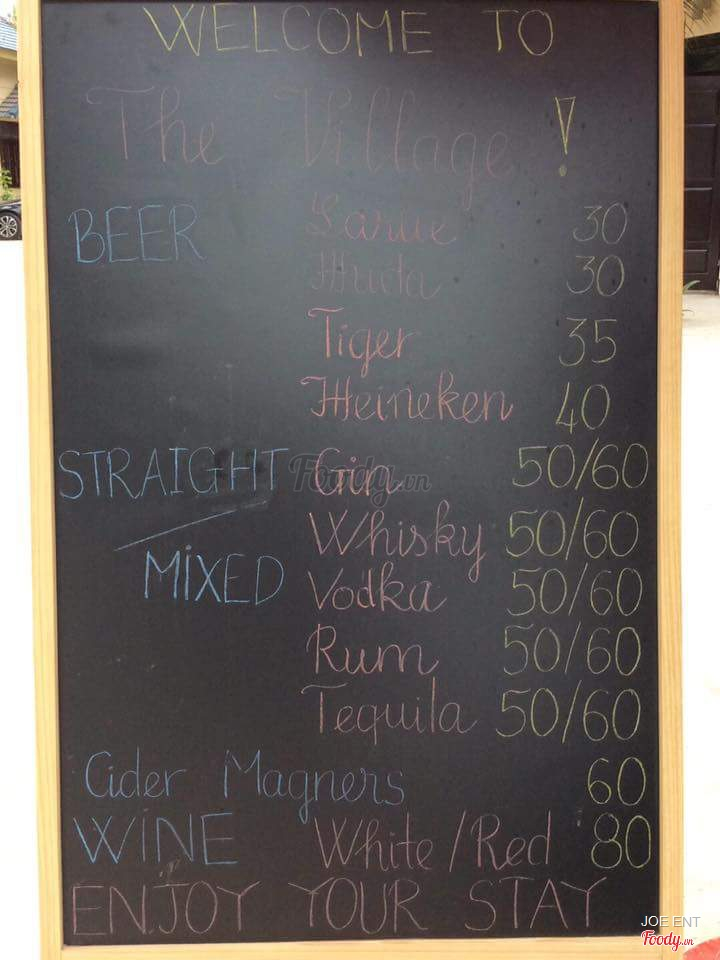 WELCOME TO
The Village !
BEER Larue 30
Huda 30
Tiger 35
Heineken 40
STRAIGHT Gin 50/60
Foody.vn
/ Whisky 50/60
MIXED Vodka 50/60
Rum 50/60
Tequila 50/60
Cider Magners 60
WINE White/Red 80
ENJOY YOUR STAY
JOE ENT
Foody.vn